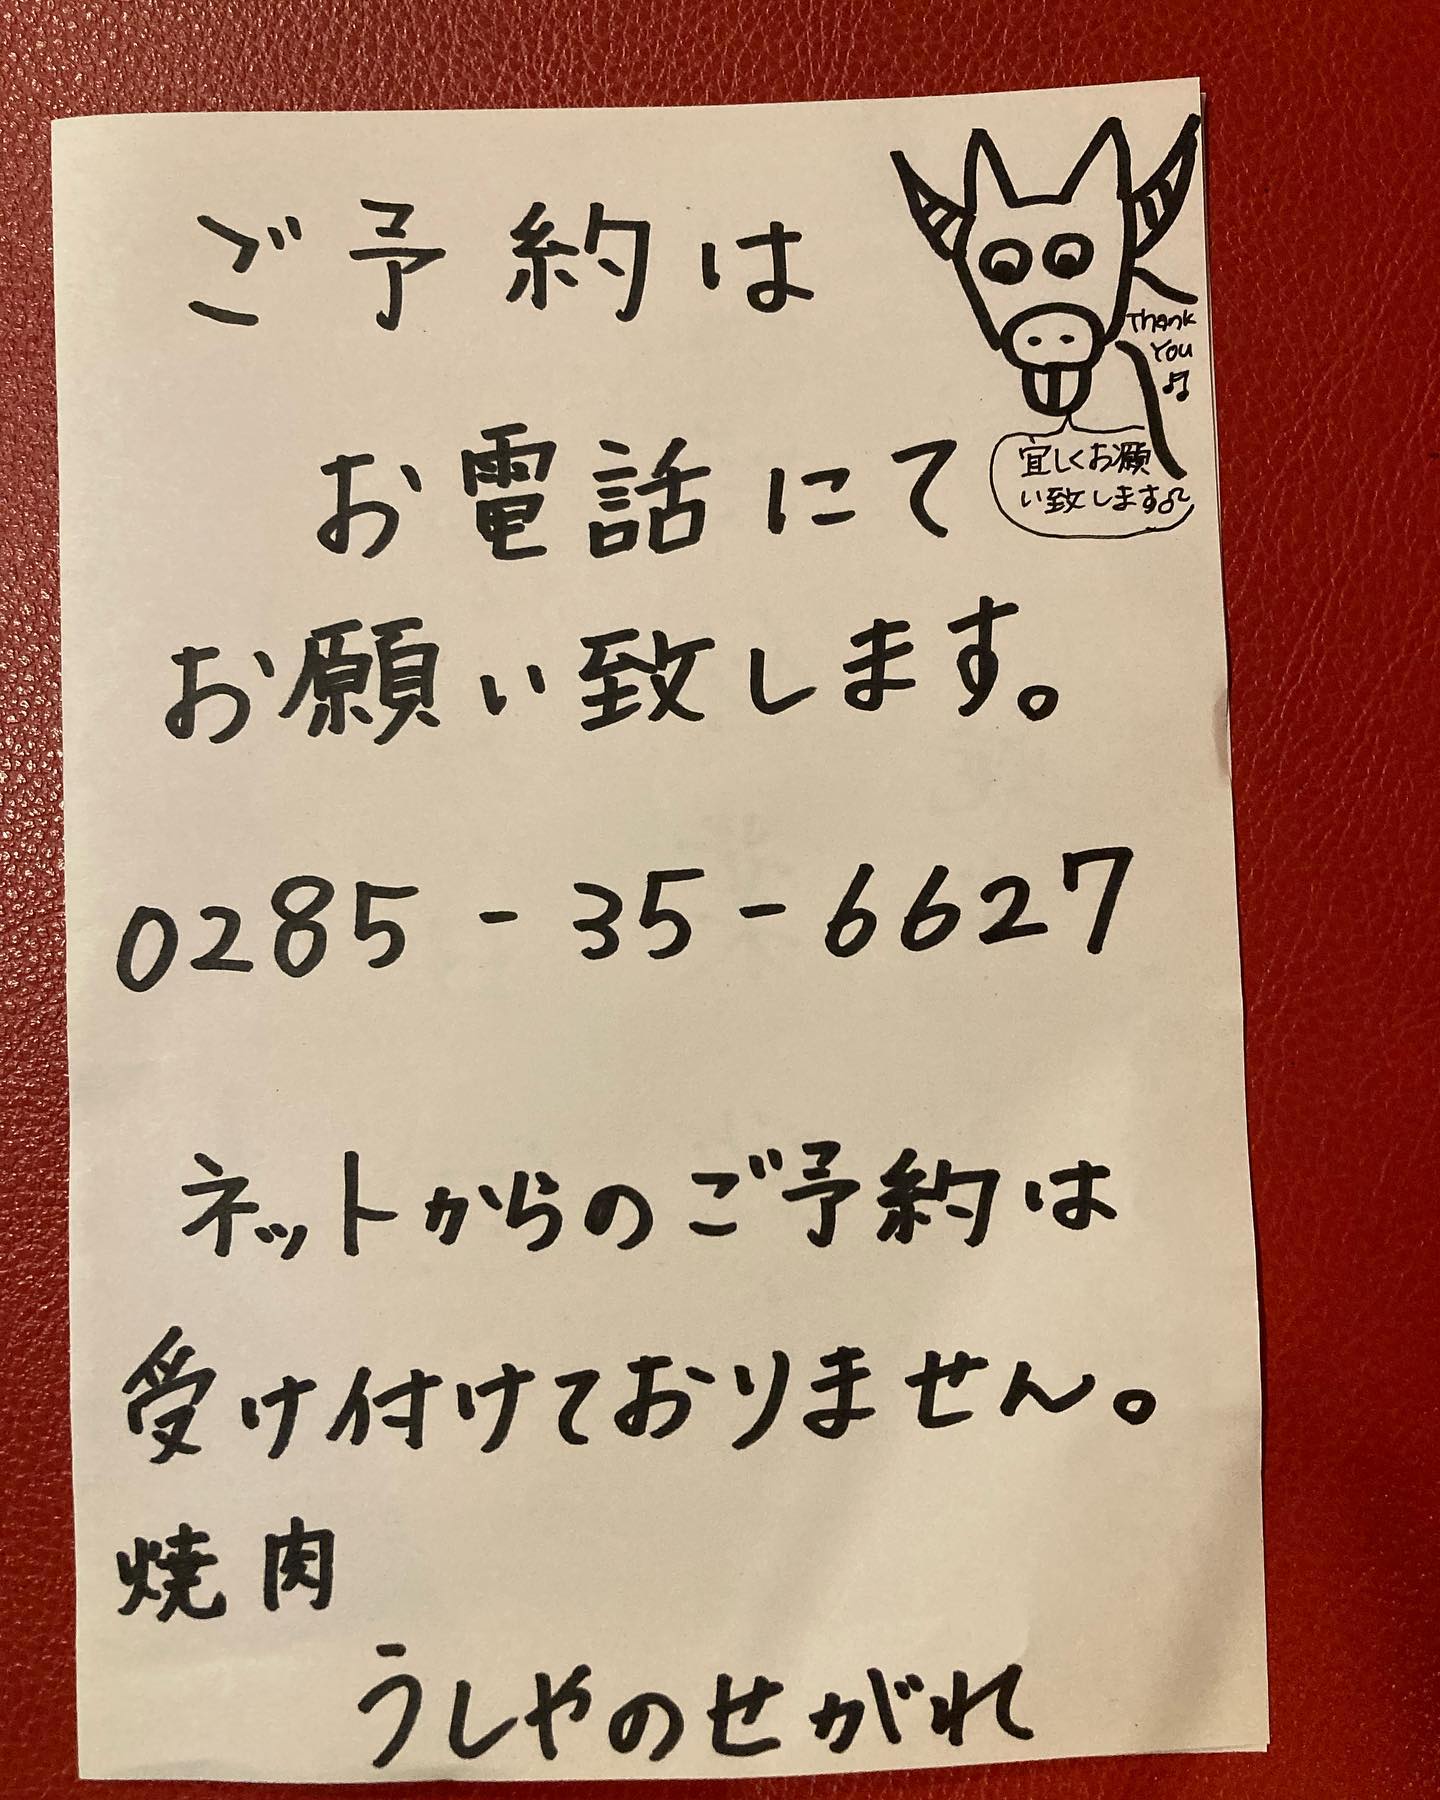 ご予約は
Thank
You♫
お電話にて
宜しくお願
い致します♫
お願い致します。
0285-35-6627
ネットからのご予約は
受け付けておりません。
焼肉
うしやのせがれ